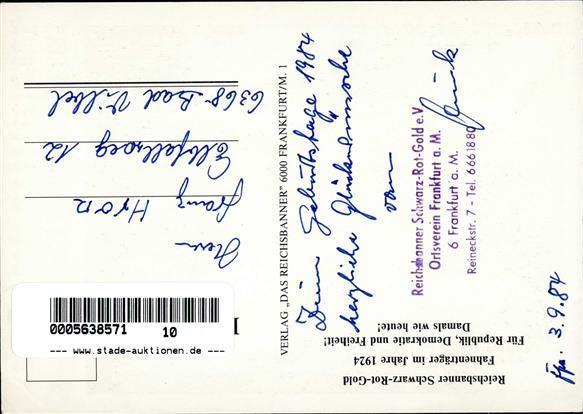 Reichsbanner Schwarz-Rot-Gold
Fahnenträger im Jahre 1924
Für Republik, Demokratie und Freiheit!
Damals wie heute!
Zum Geburtstage 1984
herzliche Glückwünsche
vom
Reichsbanner Schwarz-Rot-Gold e.V.
Ortsverein Frankfurt a. M.
6 Frankfurt a. M.
Reineckstr. 7 - Tel. 6661880
Ffm. 3.9.84
VERLAG „DAS REICHSBANNER" 6000 FRANKFURT/M. 1
Herrn
Franz
12
6368 Bad Vilbel
0005638571 10
--- www.stade-auktionen.de ---